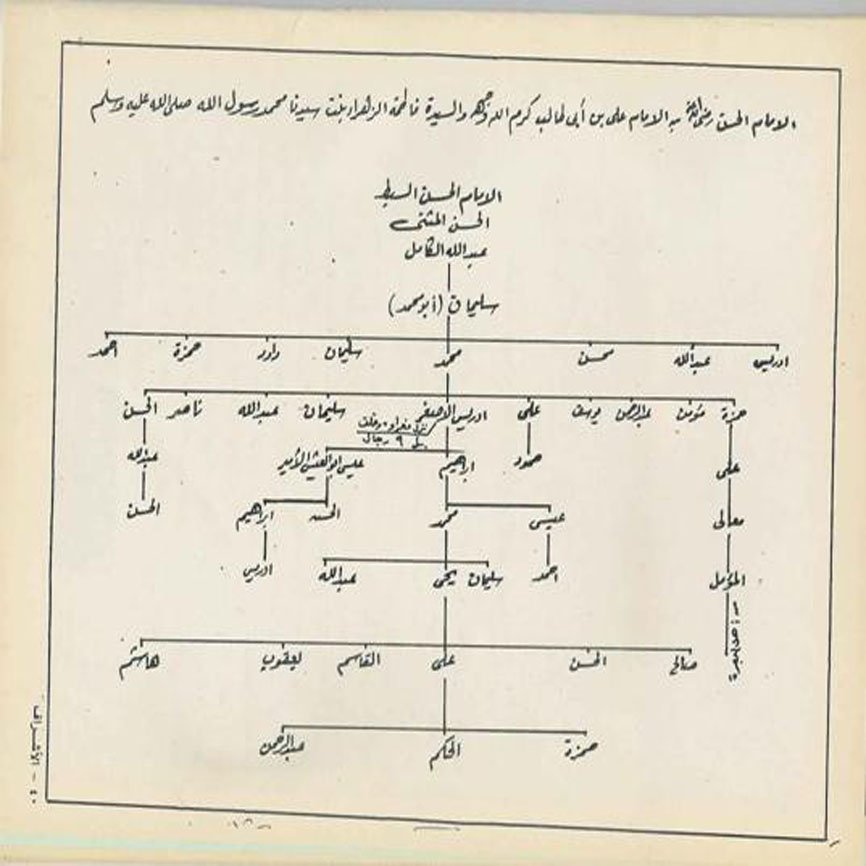 الامام الحسن رضي الله عنه بن الامام علي بن أبي طالب كرم الله وجهه والسيدة فاطمة الزهراء بنت سيدنا محمد رسول الله صلى الله عليه وسلم
الامام الحسن السبط
الحسن المثنى
عبدالله الكامل
سليمان (أبو محمد)
ادريس عبدالله محسن محمد سليمان داود حمزة احمد
حمزة مؤمن عبدالرحمن يوسف علي ادريس الاصغر سليمان عبدالله ناصر الحسن
رجال ٩
علي حمود ابراهيم عيسى ابوالعيش الأمير عبدالله
معالى عيسى محمد الحسن ابراهيم الحسن
المؤمل احمد سليمان يحيى عبدالله ادريس
صالح الحسن علي القاسم يعقوب هاشم
حمزة الحكم عبدالرحمن
الأشراف